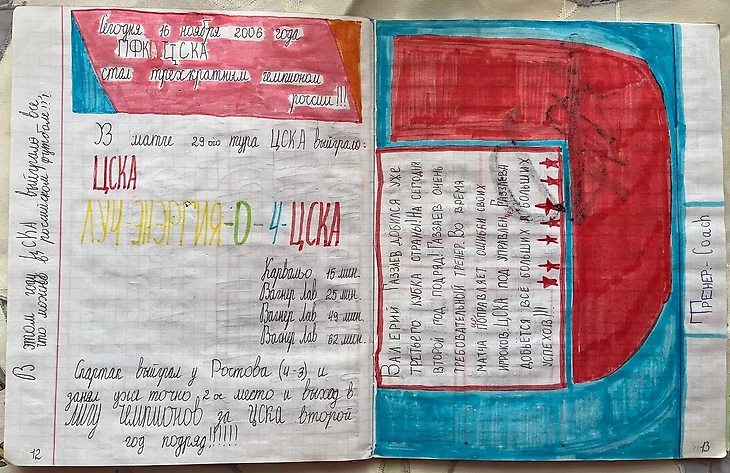 Сегодня 16 ноября 2006 года
ПФК ЦСКА
стал трёхкратным чемпионом
россии!!!
В матче 29ого тура ЦСКА выйграло:
ЦСКА
ЛУЧ-ЭНЭРГИЯ-0-4-ЦСКА
Карвальо 15 мин.
Вагнер Лав 25 мин.
Вагнер Лав 49 мин.
Вагнер Лав 62 мин.
Спартак выйграл у Ростова (4-3) и
занял уже точно 2ое место и выход в
лигу чемпионов за цска второй
год подряд!!!!!!
В этом году ЦСКА выйграло все,
что можно в российском футболе!!!
12
Валерий Газзаев добился уже
третьего кубка страны! На сегодня
второй год подряд! Газзаев очень
требовательной тренер. Во время
матча поправляет ошибки своих
игроков. ЦСКА под управлен. Газзаева
добьётся всё больших и больших
успехов!!!
Тренер-Coach
13